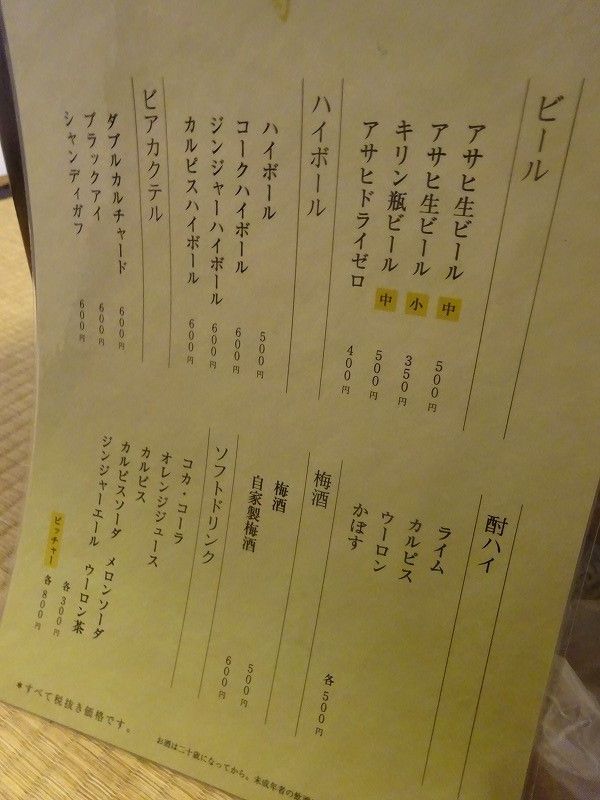 ビール
アサヒ生ビール 中 500円
アサヒ生ビール 小 350円
キリン瓶ビール 中 500円
アサヒドライゼロ 400円
ハイボール
ハイボール 500円
コークハイボール 600円
ジンジャーハイボール 600円
カルピスハイボール 600円
ビアカクテル
ダブルカルチャード 600円
ブラックアイ 600円
シャンディガフ 600円
酎ハイ
ライム
カルピス
ウーロン
かぼす
各500円
梅酒
梅酒 500円
自家製梅酒 600円
ソフトドリンク
コカ・コーラ
オレンジジュース
カルピス
カルピスソーダ メロンソーダ
ジンジャーエール ウーロン茶
各300円
ピッチャー 各800円
*すべて税抜き価格です。
お酒は二十歳になってから。未成年者の飲酒